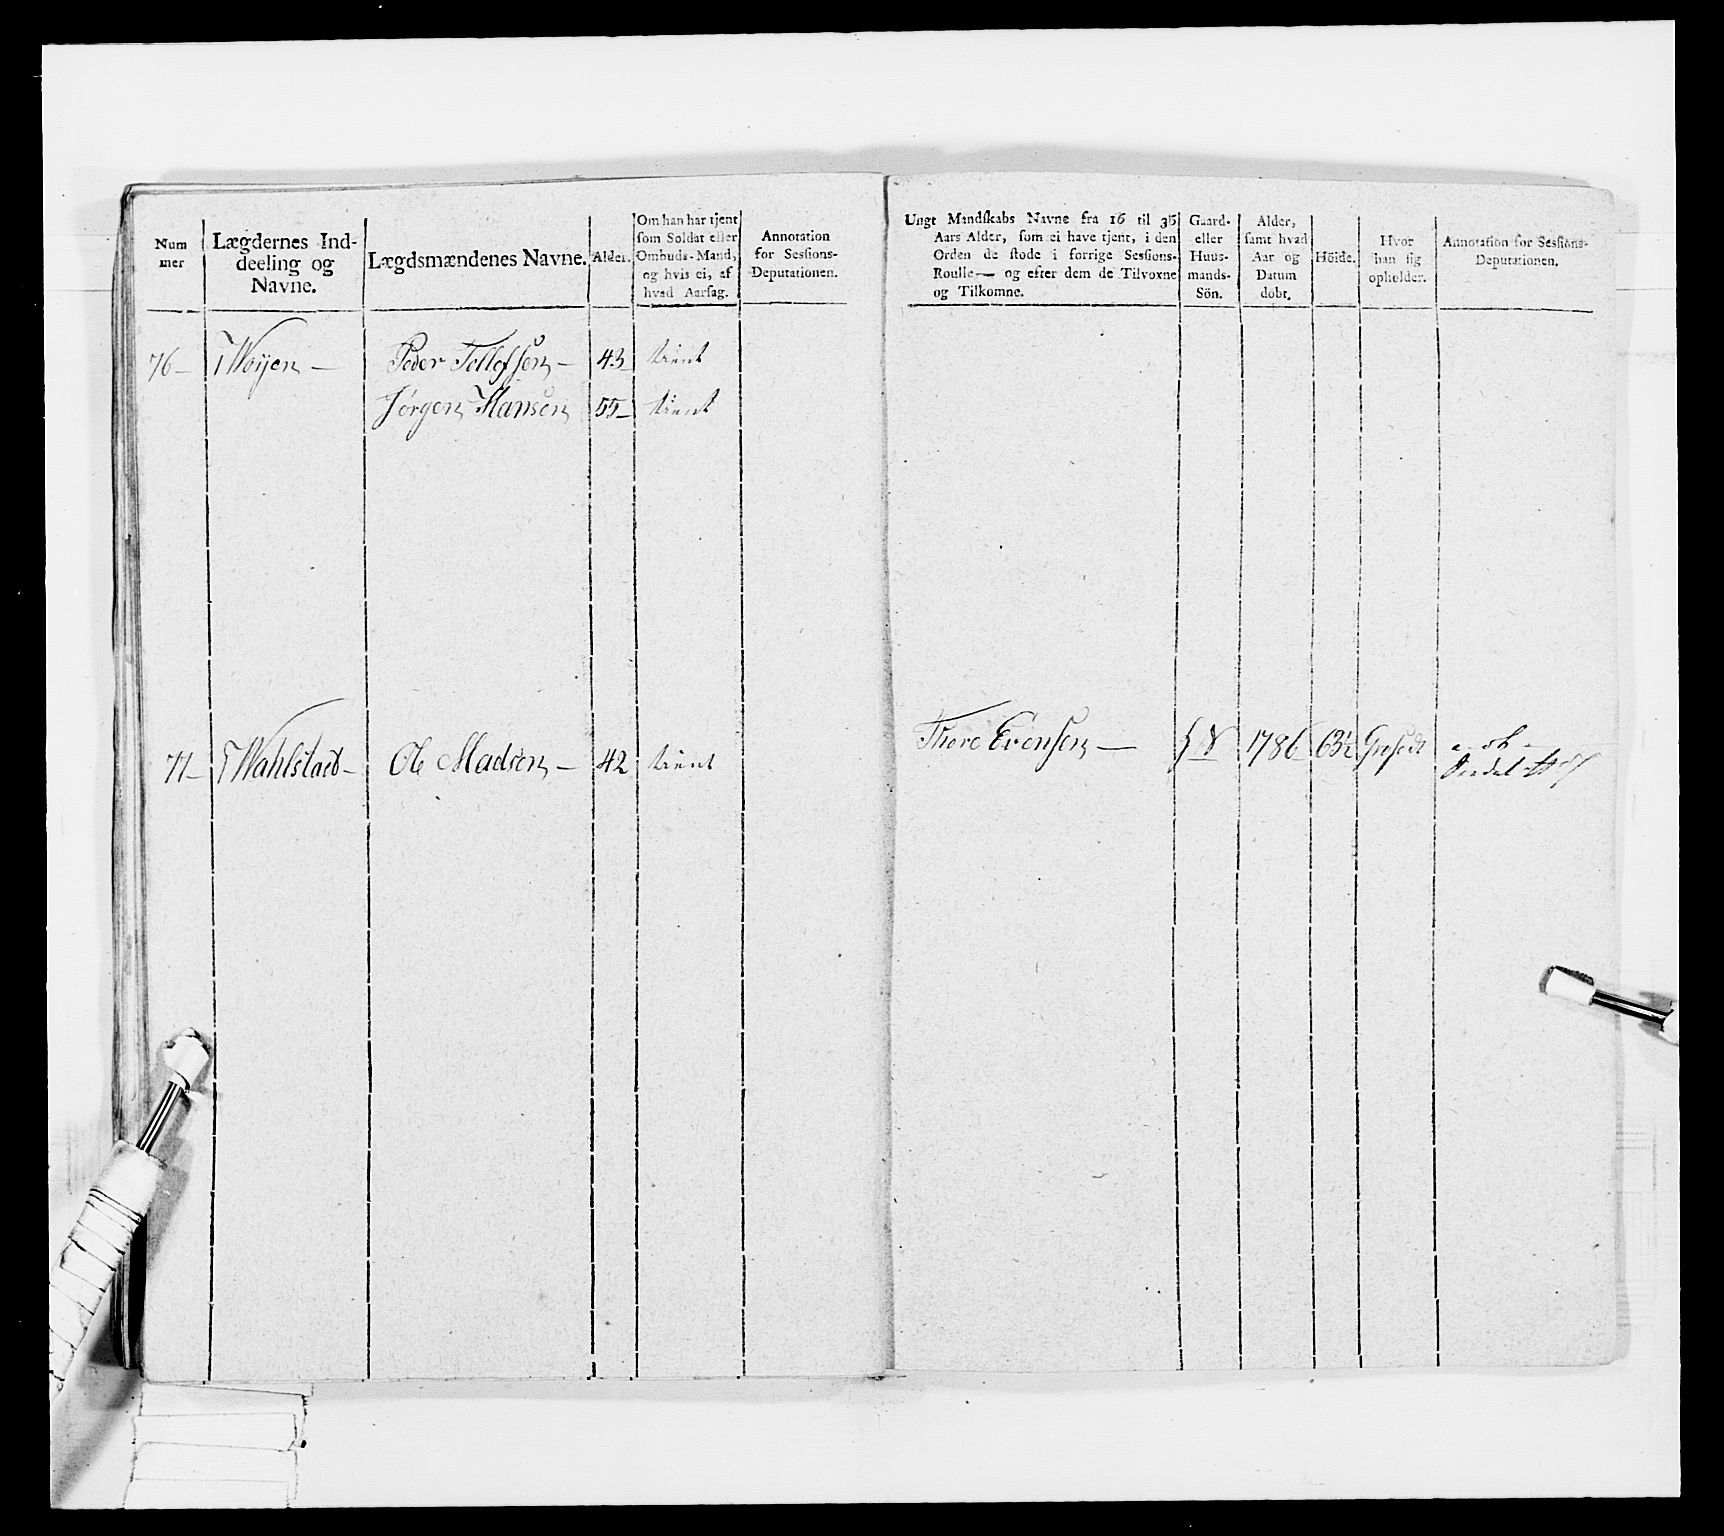 Num
mer
Lægdernes Ind-
deeling og
Navne.
Lægdsmændenes Navne.
Alder.
Om han har tjent
som Soldat eller
Ombuds-Mand,
og hvis ei, af
hvad Aarsag.
Annotation
for Sessions-
Deputationen.
76 Woÿen Peder Tellefsen 43 tient
Jørgen Hansen 55 tient
77 Wahlstad Ole Madsen 42 tient
Ungt Mandskabs Navne fra 16 til 36
Aars Alder, som ei have tjent, i den
Orden de stode i forrige Sessions-
Roulle — og efter dem de Tilvoxne
og Tilkomne.
Gaard-
eller
Huus-
mands-
Sön.
Alder,
samt hvad
Aar og
Datum
döbt.
Höide.
Hvor
han sig
opholder.
Annotation for Sessions-
Deputationen.
Thore Evensen 1786